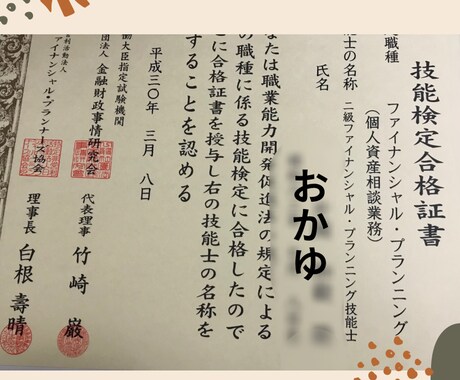 技能検定合格証書
職種
ファイナンシャル・プランニング
(個人資産相談業務)
士の名称 二級ファイナンシャル・プランニング技能士
氏名
おかゆ
なたは職業能力開発促進法の規定による
の職種に係る技能検定に合格したので
こに合格証書を授与し右の技能士の名称を
することを認める
平成三〇年 三月 八日
働大臣指定試験機関
団法人 金融財政事情研究会
代表理事 竹崎 巌
利活動法人
ァイナンシャル・プランナーズ協会
理事長 白根 壽晴